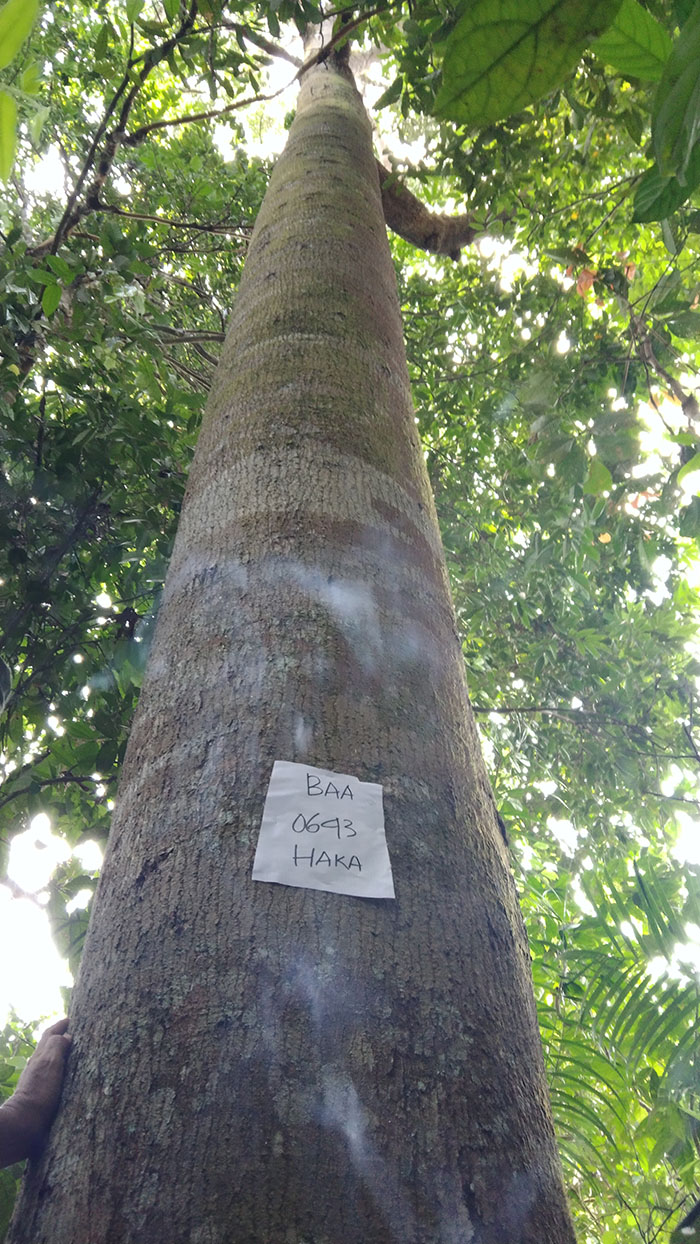 BAA
0643
HAKA